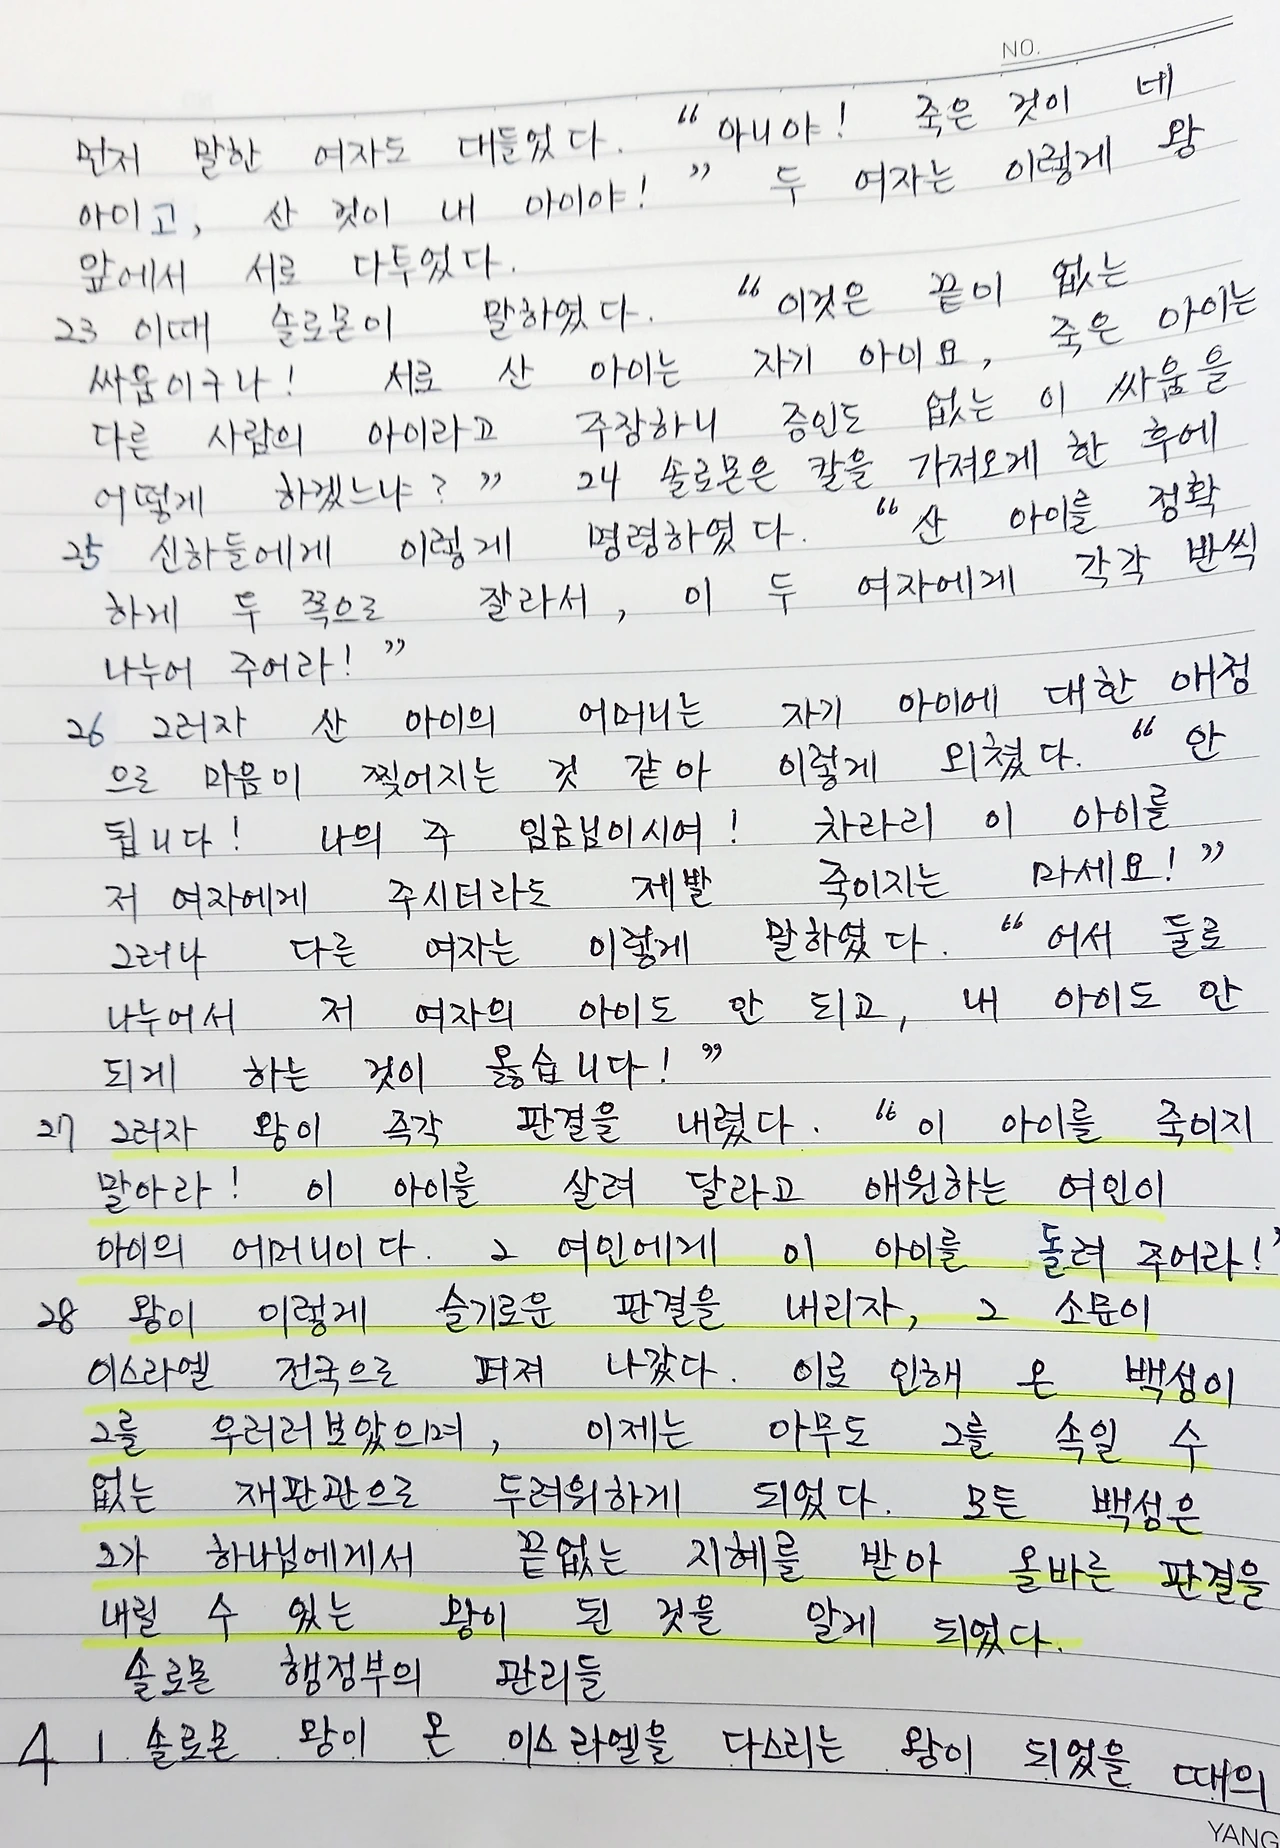 NO.
먼저 말한 여자도 대들었다. “아니야! 죽은 것이 네
아이고, 산 것이 내 아이야!” 두 여자는 이렇게 왕
앞에서 서로 다투었다.
23 이때 솔로몬이 말하였다. “이것은 끝이 없는
싸움이구나! 서로 산 아이는 자기 아이요, 죽은 아이는
다른 사람의 아이라고 주장하니 증인도 없는 이 싸움을
어떻게 하겠느냐?” 24 솔로몬은 칼을 가져오게 한 후에
25 신하들에게 이렇게 명령하였다. “산 아이를 정확
하게 두 쪽으로 잘라서, 이 두 여자에게 각각 반씩
나누어 주어라!”
26 그러자 산 아이의 어머니는 자기 아이에 대한 애정
으로 마음이 찢어지는 것 같아 이렇게 외쳤다. “안
됩니다! 나의 주 임금님이시여! 차라리 이 아이를
저 여자에게 주시더라도 제발 죽이지는 마세요!”
그러나 다른 여자는 이렇게 말하였다. “어서 둘로
나누어서 저 여자의 아이도 안 되고, 내 아이도 안
되게 하는 것이 옳습니다!”
27 그러자 왕이 즉각 판결을 내렸다. “이 아이를 죽이지
말아라! 이 아이를 살려 달라고 애원하는 여인이
아이의 어머니이다. 그 여인에게 이 아이를 돌려 주어라!”
28 왕이 이렇게 슬기로운 판결을 내리자, 그 소문이
이스라엘 전국으로 퍼져 나갔다. 이로 인해 온 백성이
그를 우러러보았으며, 이제는 아무도 그를 속일 수
없는 재판관으로 두려워하게 되었다. 모든 백성은
그가 하나님에게서 끝없는 지혜를 받아 올바른 판결을
내릴 수 있는 왕이 된 것을 알게 되었다.
솔로몬 행정부의 관리들
4 1 솔로몬 왕이 온 이스라엘을 다스리는 왕이 되었을 때의
YANG